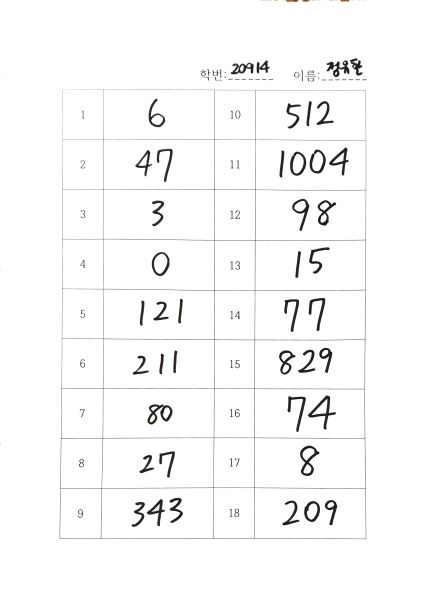 학번: 20914 이름: 정유환
1 6 10 512
2 47 11 1004
3 3 12 98
4 0 13 15
5 121 14 77
6 211 15 829
7 80 16 74
8 27 17 8
9 343 18 209